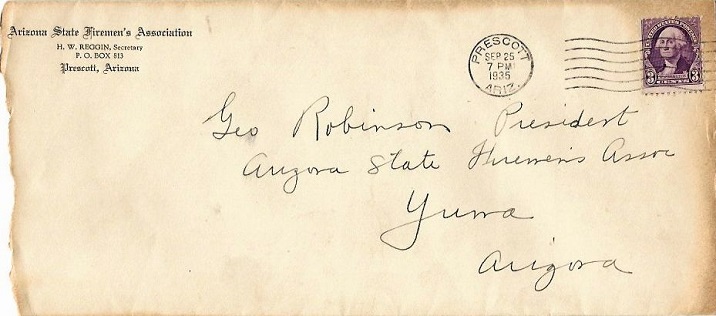 Arizona State Firemen's Association
H. W. REGGIN, Secretary
P. O. BOX 813
Prescott, Arizona
PRESCOTT
SEP 25
7 PM
1935
ARIZ.
3 CENTS 3
Geo Robinson President
Arizona State Firemen's Assoc
Yuma
Arizona